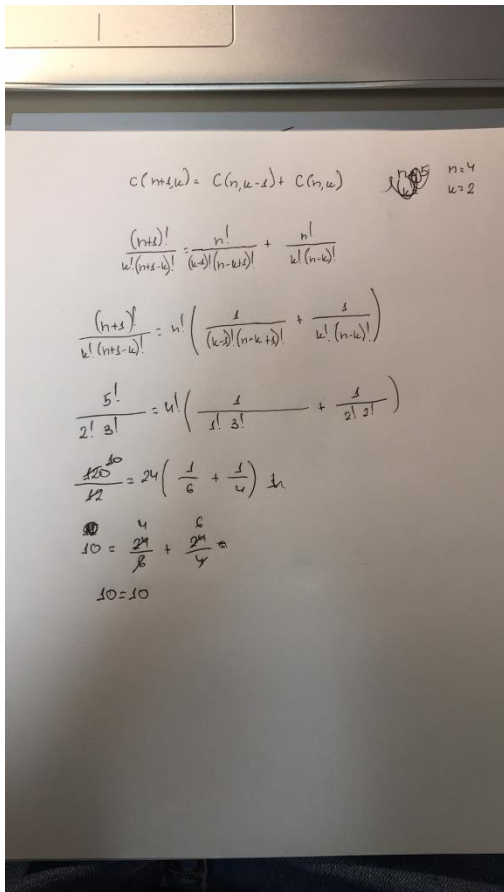 C(n+1,k) = C(n,k-1) + C(n,k) n=4
k=2
(n+1)!/k!(n+1-k)! = n!/(k-1)!(n-k+1)! + n!/k!(n-k)!
(n+1)!/k!(n+1-k)! = n!(1/(k-1)!(n-k+1)! + 1/k!(n-k)!)
5!/2! 3! = 4!(1/1! 3! + 1/2! 2!)
120 10/12 = 24(1/6 + 1/4)
10 = 4 24/6 + 6 24/4
10=10